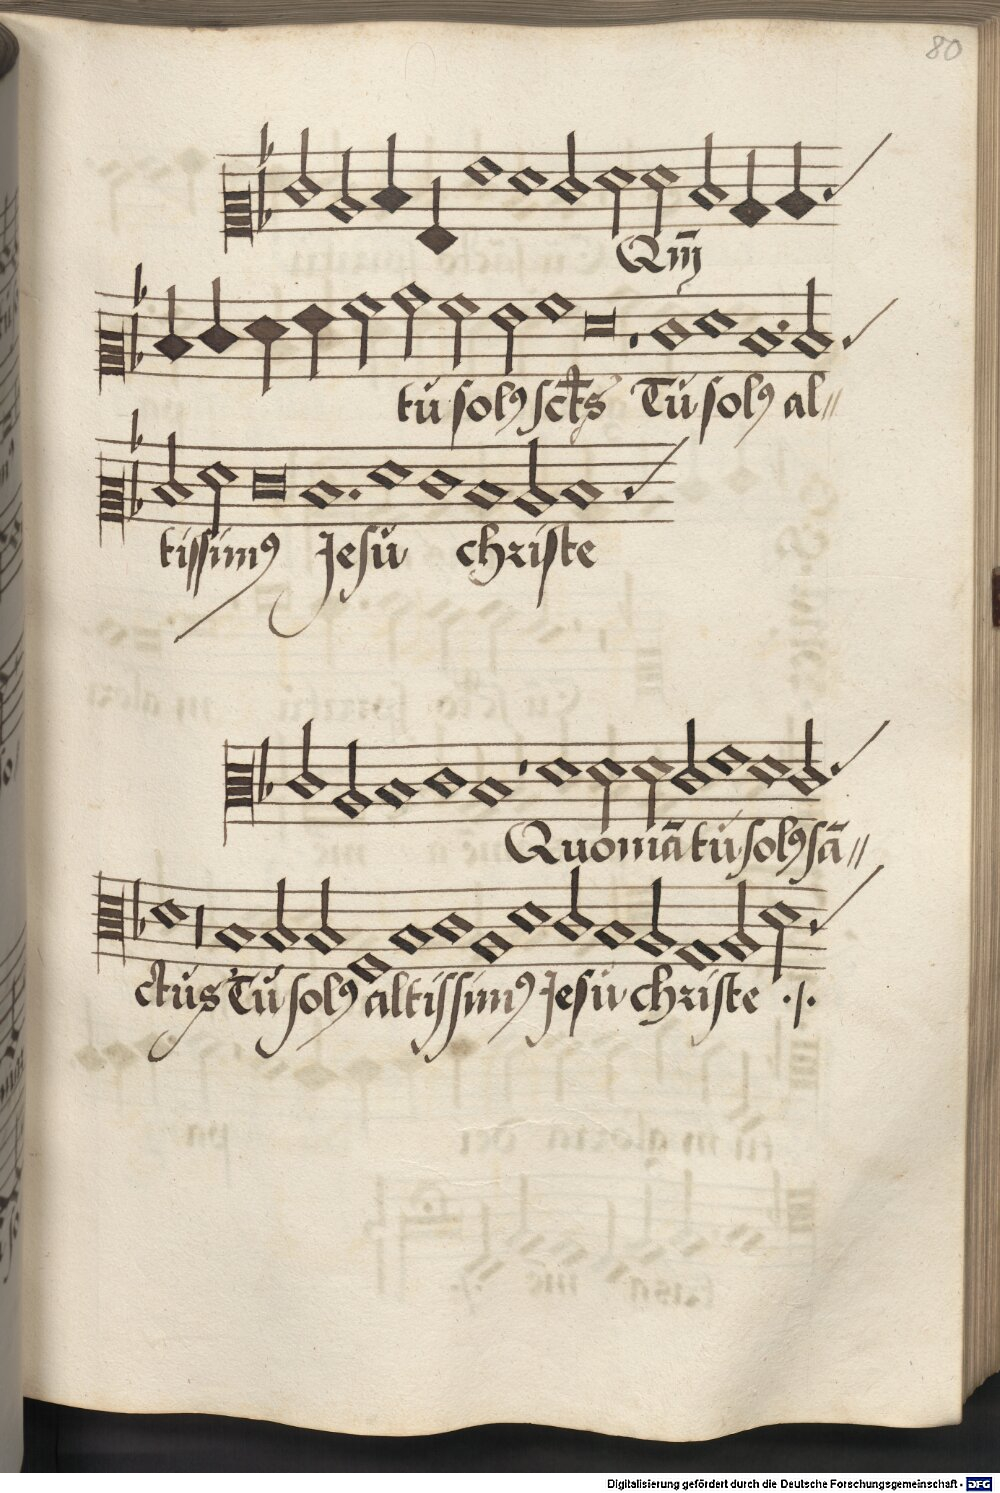 80
Qm̄
tu solꝰ sct̄s Tu solꝰ al//
tissimꝰ Jesu christe
Quoniā tu solꝰ sā//
ctus Tu solꝰ altissimꝰ Jesu christe ·/·
Digitalisierung gefördert durch die Deutsche Forschungsgemeinschaft - DFG